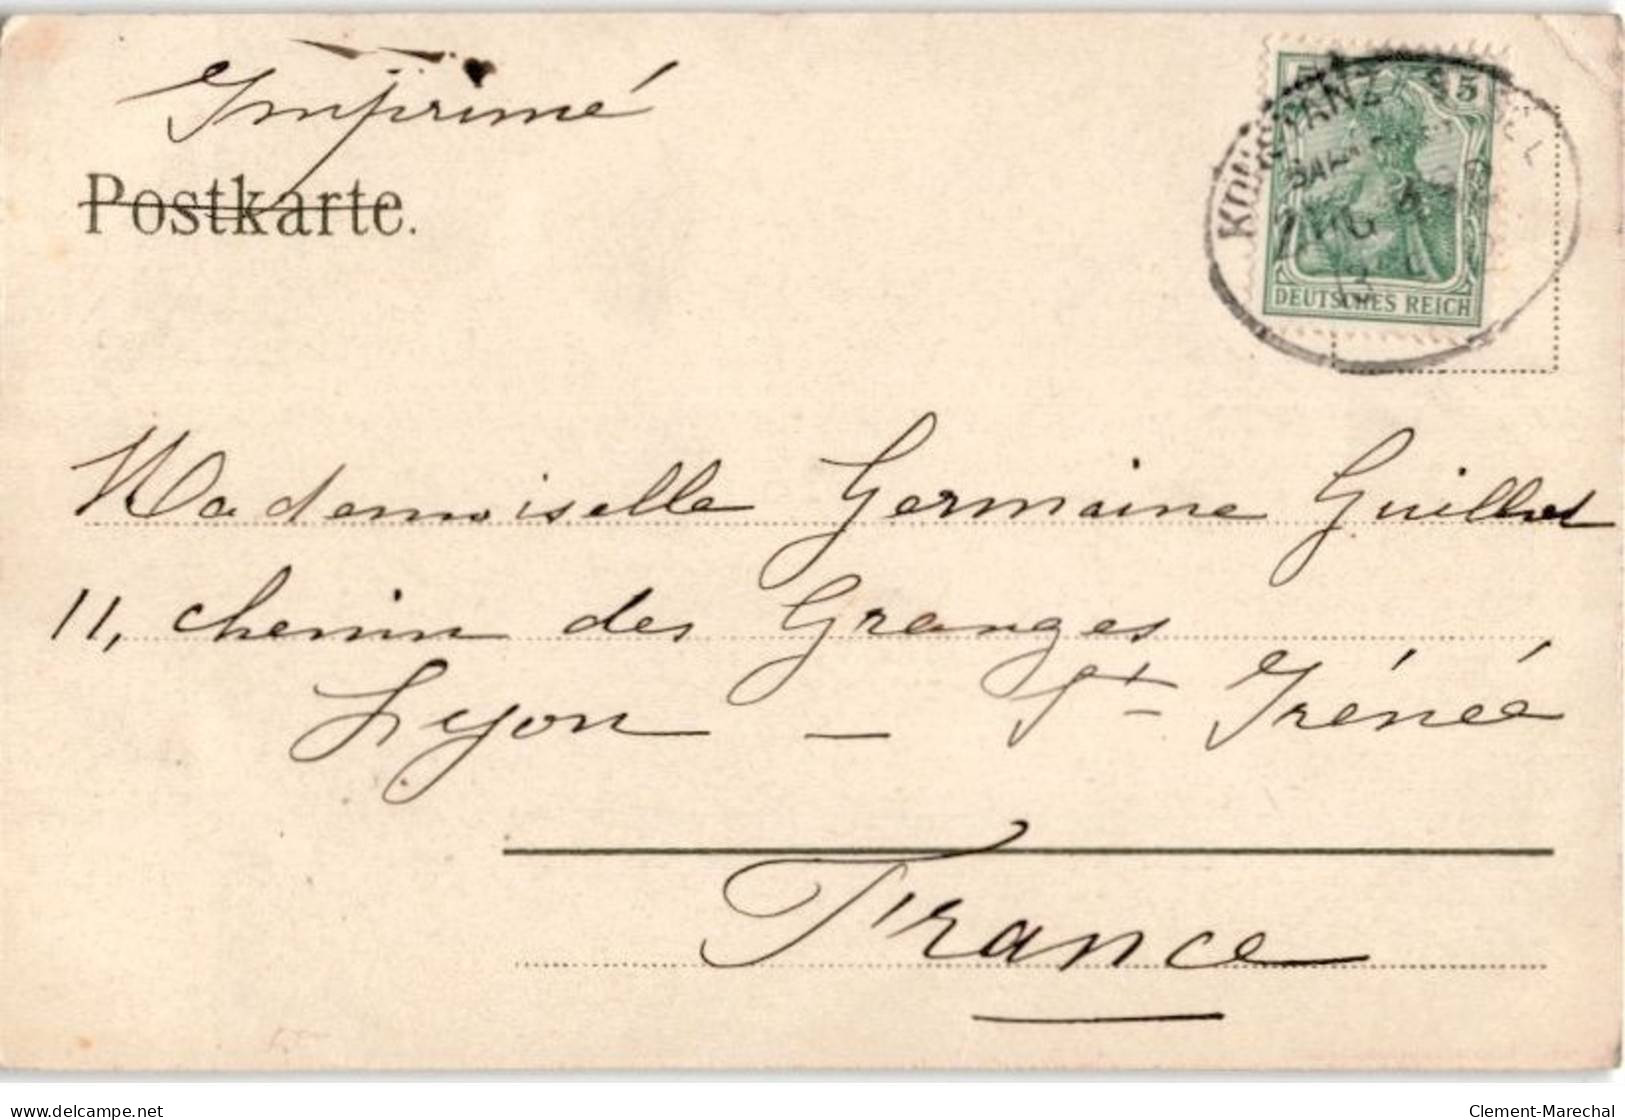 Imprimé
Postkarte.
5 5
DEUTSCHES REICH
KONSTANZ
ZUG
Mademoiselle Germaine Guillot
11, chemin des Granges
Lyon – St Irénée
France
www.delcampe.net
Clement-Marechal